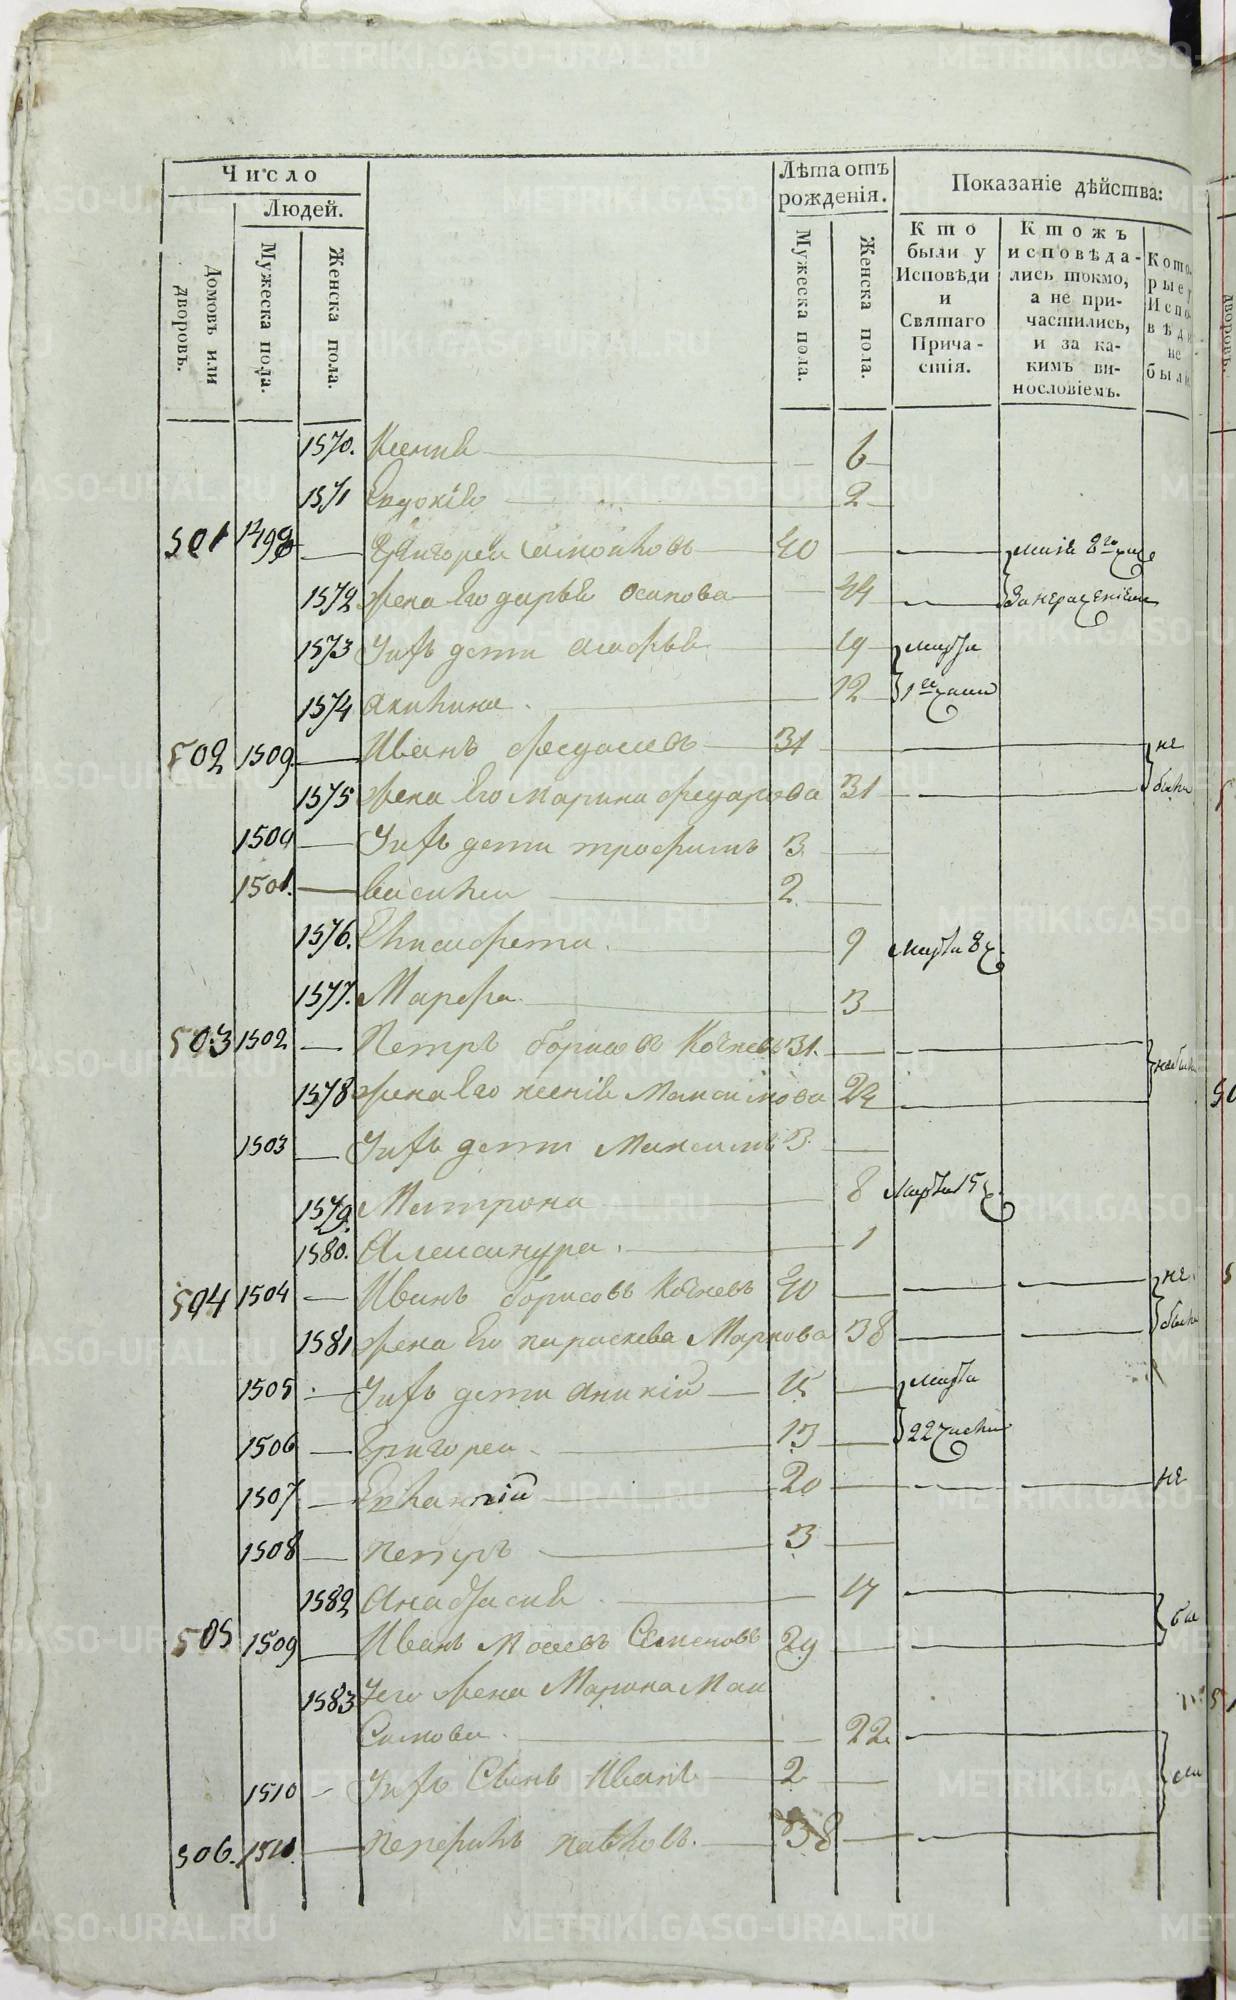 Число
Людей.
Домовъ или дворовъ.
Мужеска пола.
Женска пола.
Лѣта отъ рожденія.
Мужеска пола.
Женска пола.
Показаніе дѣйства:
Кто были у Исповѣди и Святаго Причастія.
Ктожъ исповѣдались токмо, а не причастились, и за какимъ винословіемъ.
Которые у Исповѣди не были
1570. Ксения 6
1571 Евдокія 2
501 Григореи 40
1572 жена Его дарья осипова 44
1573 Ихъ дети агафья 19 марта
1574 акилина 12
502 1509 Иванъ 31 не
1575 жена Его Марина федарова 31 были
1500 Ихъ дети трофимъ 3
1501. василеи 2
1576. Елисафета 9 марта 8
1577. Марфа 3
503 1502 Петръ борисовъ Кочневъ 31.
1578 жена Его ксенія Максимова 24
1503 Ихъ дети Максимъ 3
1579. Матрона 8 Марта 15
1580. Александра. 1
504 1504 Иванъ борисовъ Кочневъ 40 не
1581 жена Его параскева Маркова 38 были
1505 Ихъ дети аникій 15 марта
1506 Григореи 13 22 числа
1507 20 не
1508 петръ 3
1582 Анастасия 17
505 1509 Иванъ Семеновъ 29
1583 Его жена Марина Мак
Симова 22
1510 Ихъ Сынъ Иванъ 2 ли
506. 38